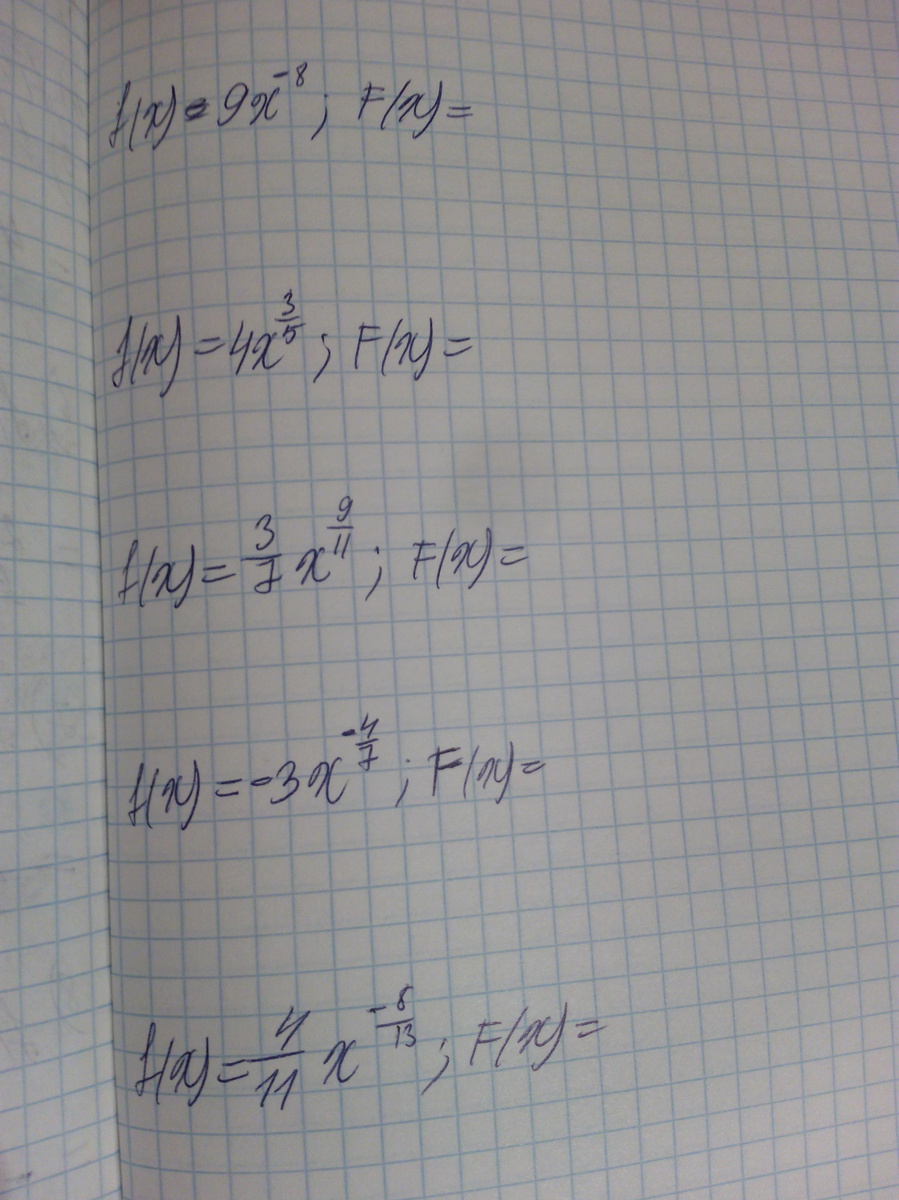 f(x) = 9x^{-8}; F(x) =
f(x) = 4x^{\frac{3}{5}}; F(x) =
f(x) = \frac{3}{7} x^{\frac{9}{11}}; F(x) =
f(x) = -3x^{-\frac{4}{7}}; F(x) =
f(x) = \frac{4}{11} x^{-\frac{8}{13}}; F(x) =